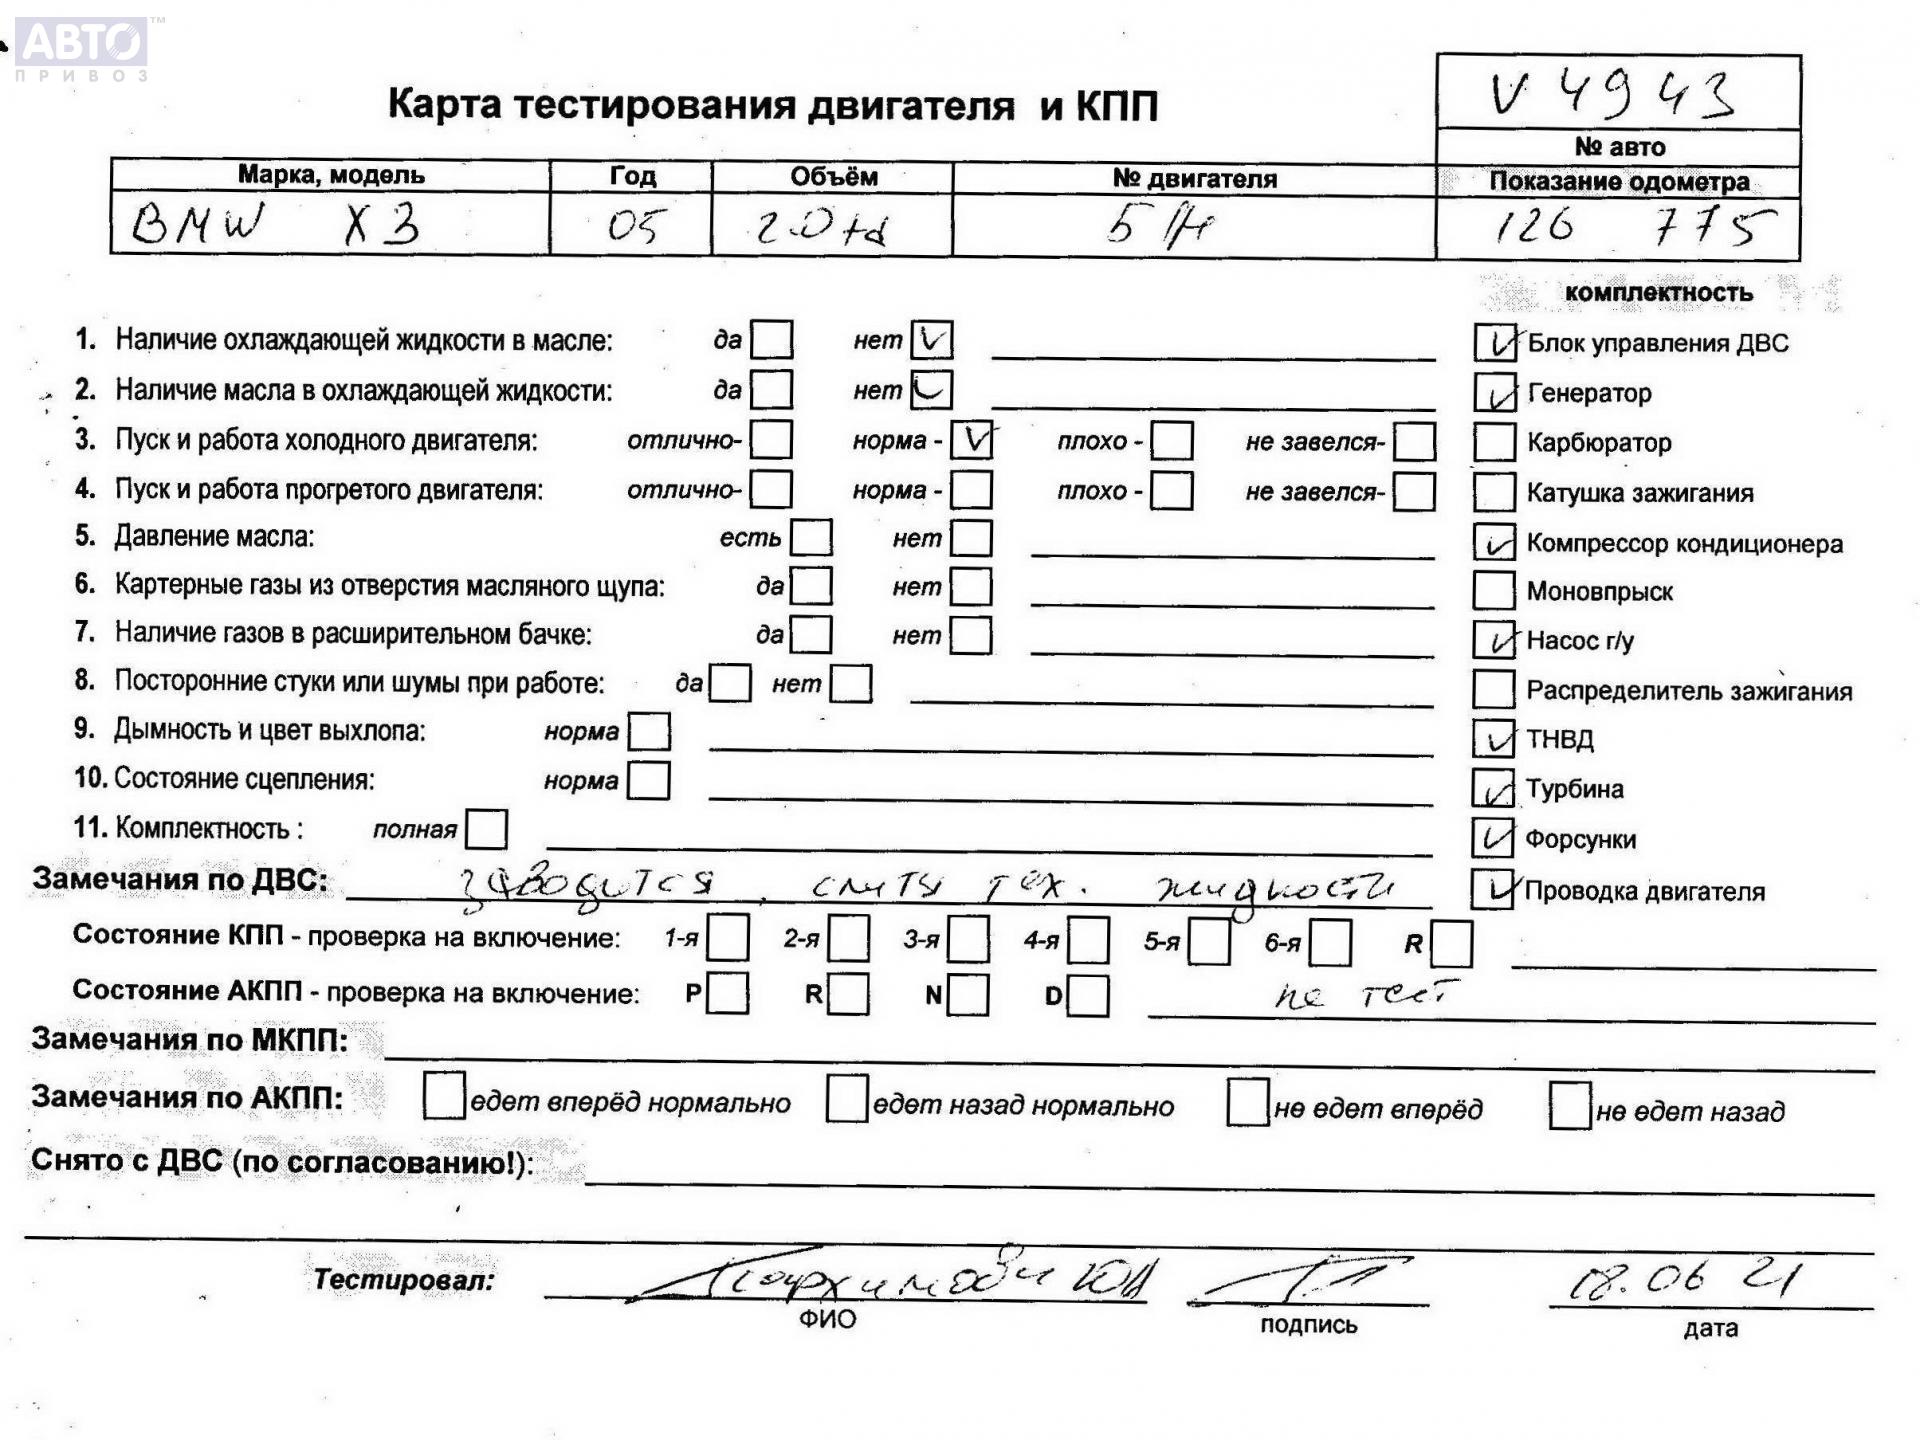 АВТО™
ПРИВОЗ
Карта тестирования двигателя и КПП
V 4943
№ авто
Марка, модель Год Объём № двигателя Показание одометра
BMW X3 05 2.0 td Б/Н 126 775
комплектность
1. Наличие охлаждающей жидкости в масле: да нет ✓
Блок управления ДВС ✓
2. Наличие масла в охлаждающей жидкости: да нет ✓
Генератор ✓
3. Пуск и работа холодного двигателя: отлично- норма - ✓ плохо - не завелся-
Карбюратор
4. Пуск и работа прогретого двигателя: отлично- норма - плохо - не завелся-
Катушка зажигания
5. Давление масла: есть нет
✓ Компрессор кондиционера
6. Картерные газы из отверстия масляного щупа: да нет
Моновпрыск
7. Наличие газов в расширительном бачке: да нет
✓ Насос г/у
8. Посторонние стуки или шумы при работе: да нет
Распределитель зажигания
9. Дымность и цвет выхлопа: норма
✓ ТНВД
10. Состояние сцепления: норма
✓ Турбина
11. Комплектность : полная
✓ Форсунки
Замечания по ДВС: заводится, слиты тех. жидкости
✓ Проводка двигателя
Состояние КПП - проверка на включение: 1-я 2-я 3-я 4-я 5-я 6-я R
Состояние АКПП - проверка на включение: P R N D не тест
Замечания по МКПП:
Замечания по АКПП: едет вперёд нормально едет назад нормально не едет вперёд не едет назад
Снято с ДВС (по согласованию!):
Тестировал: 06 21
ФИО подпись дата